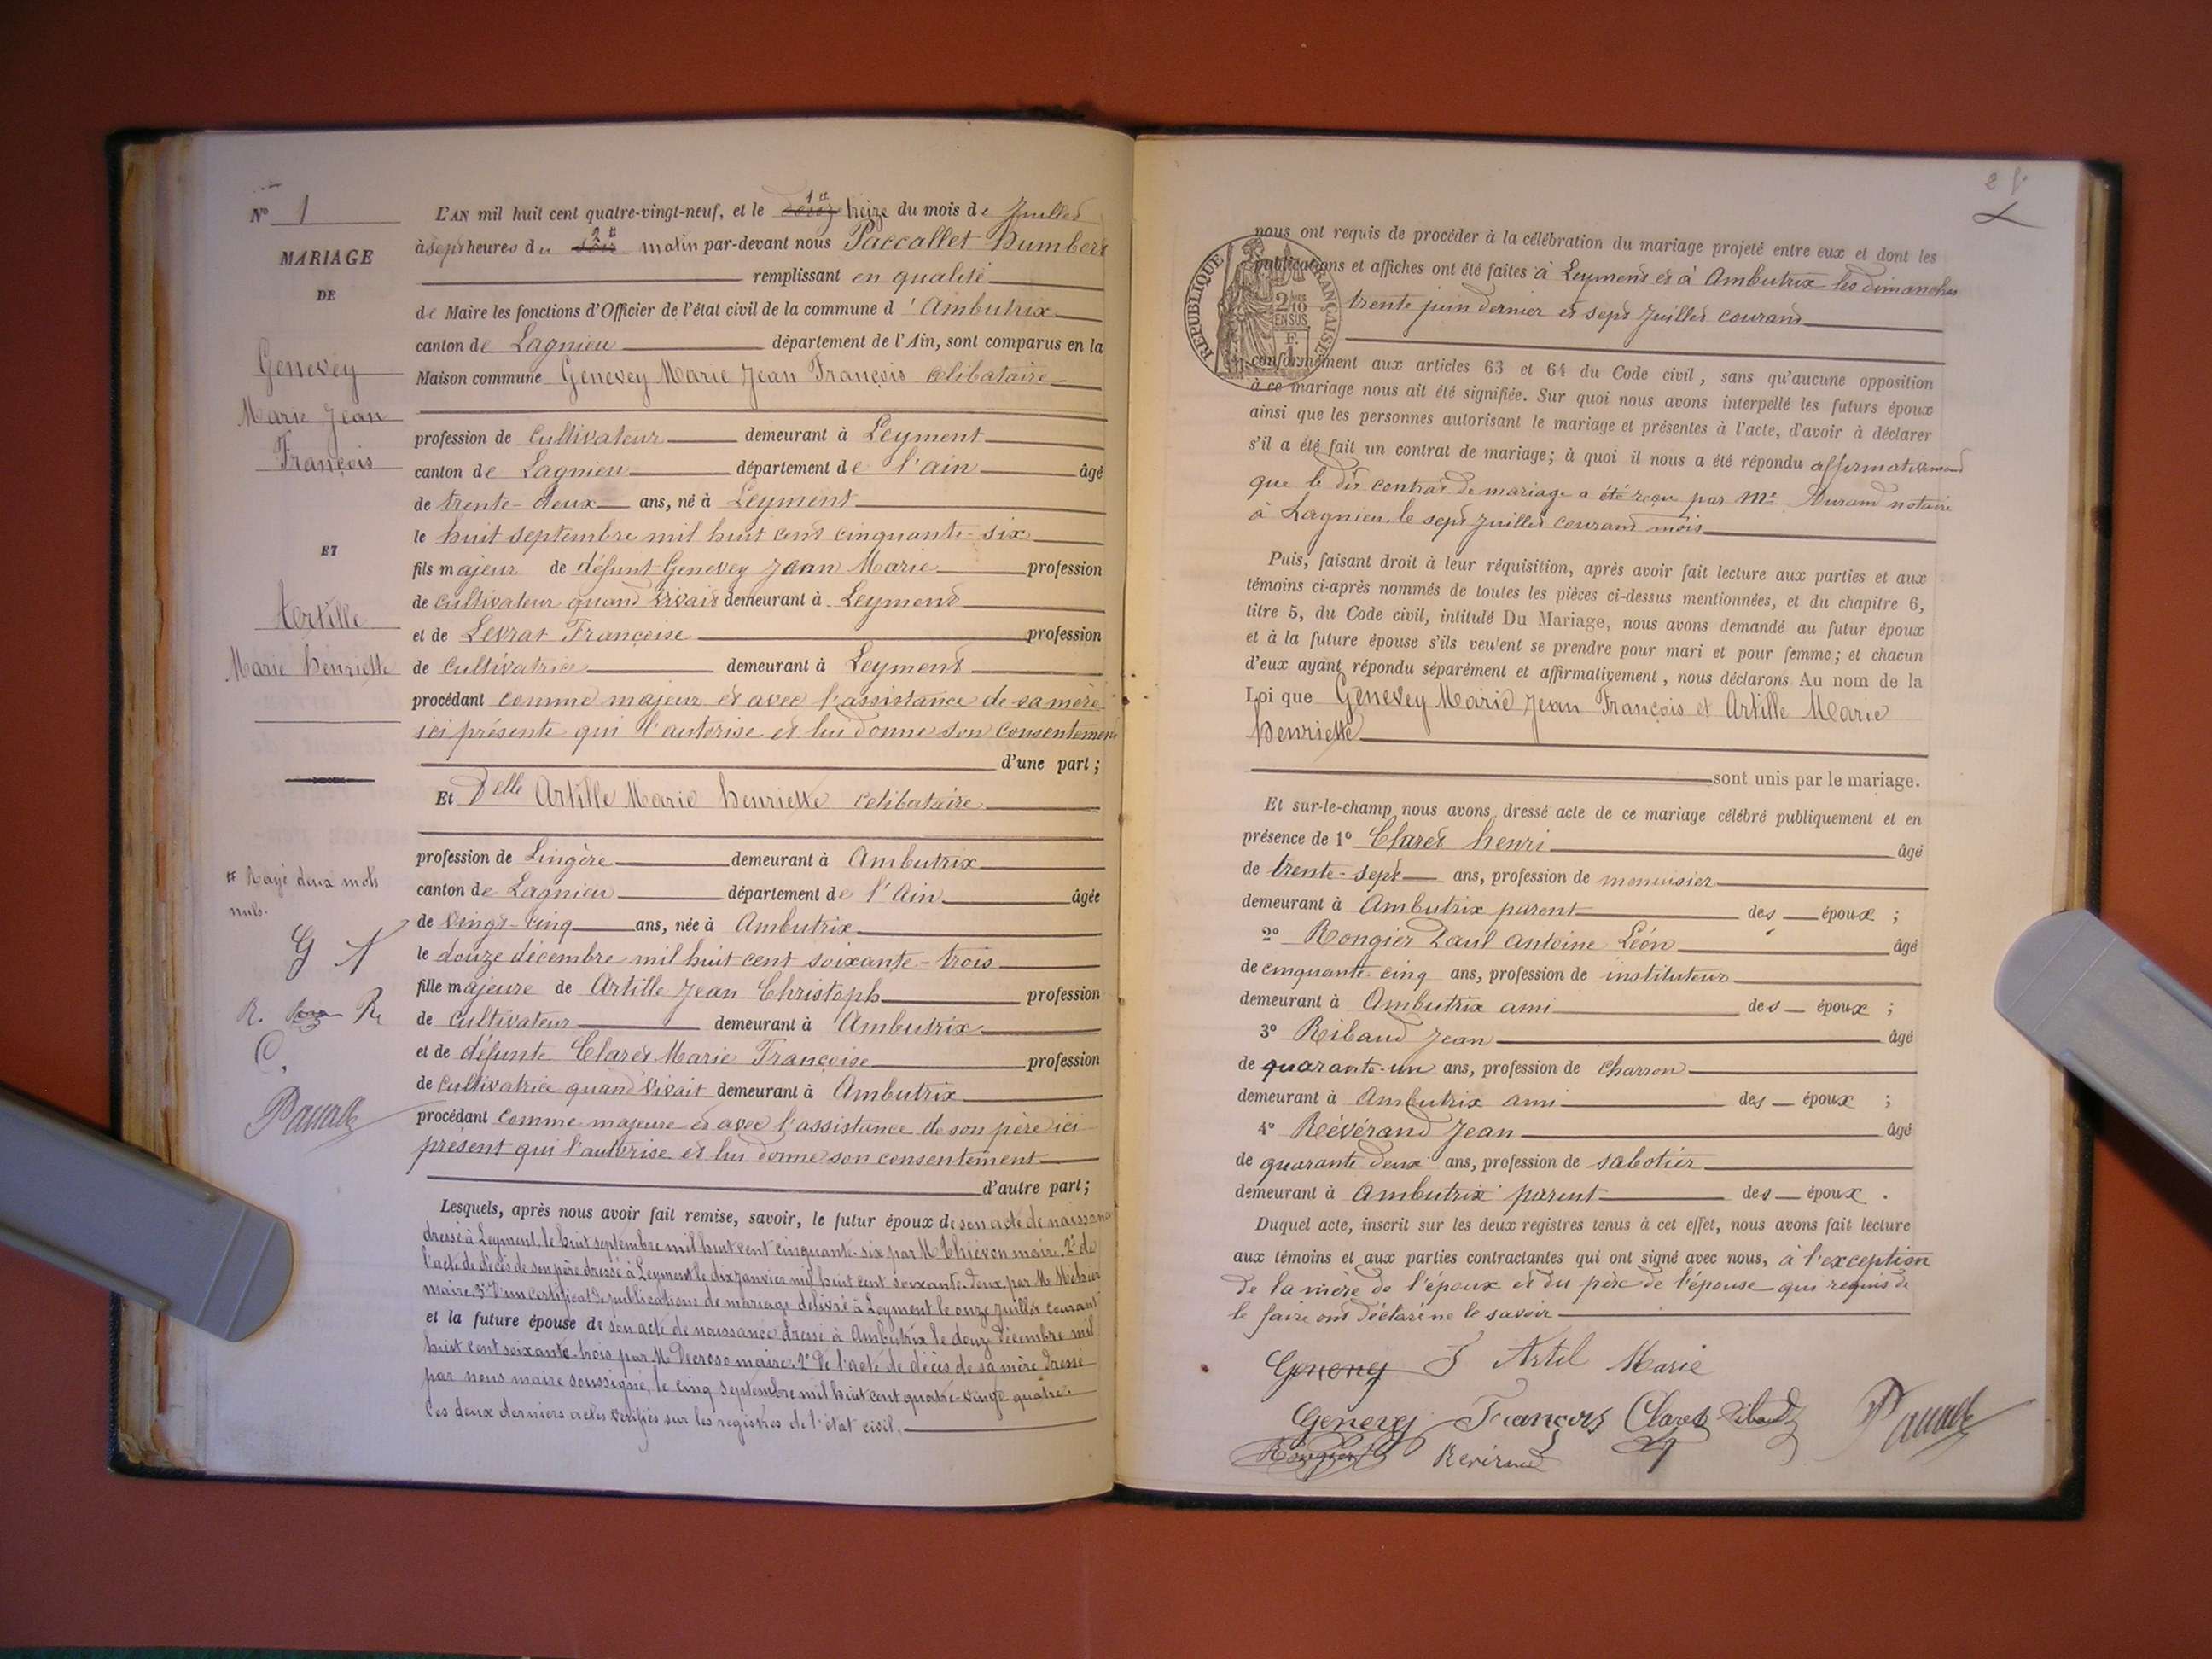 N° 1
MARIAGE
DE
Genevey
Marie Jean
François
ET
Artille
Marie henriette
# Rayé deux mots
nuls.
G A
R. R
C.
L'AN mil huit cent quatre-vingt-neuf, et le treize du mois de Juillet
à sept heures du matin par-devant nous Paccallet humbert
remplissant en qualité
de Maire les fonctions d'Officier de l'état civil de la commune d'Ambutrix
canton de Lagnieu département de l'Ain, sont comparus en la
Maison commune Genevey Marie Jean François célibataire
profession de Cultivateur demeurant à Leyment
canton de Lagnieu département de l'ain âgé
de trente-deux ans, né à Leyment
le huit septembre mil huit cent cinquante-six
fils majeur de défunt Genevey Jean Marie profession
de cultivateur quand vivait demeurant à Leyment
et de Levrat Françoise profession
de cultivatrice demeurant à Leyment
procédant comme majeur et avec l'assistance de sa mère
ici présente qui l'autorise et lui donne son consentement
d'une part ;
Et Delle Artille Marie henriette célibataire
profession de Lingère demeurant à Ambutrix
canton de Lagnieu département de l'Ain âgée
de vingt-cinq ans, née à Ambutrix
le douze décembre mil huit cent soixante-trois
fille majeure de Artille Jean Christoph profession
de cultivateur demeurant à Ambutrix
et de défunte Claret Marie Françoise profession
de cultivatrice quand vivait demeurant à Ambutrix
procédant comme majeure et avec l'assistance de son père ici
présent qui l'autorise et lui donne son consentement
d'autre part ;
Lesquels, après nous avoir fait remise, savoir, le futur époux de son acte de naissance
dressé à Leyment, le huit septembre mil huit cent cinquante-six par M. Thiévon maire. 2° de
l'acte de décès de son père dressé à Leyment le dix janvier mil huit cent soixante-deux par M.
maire. 3° D'un certificat de publications de mariage délivré à Leyment le onze juillet courant
et la future épouse de son acte de naissance dressé à Ambutrix le douze décembre mil
huit cent soixante-trois par M. Decroso maire. 2° De l'acte de décès de sa mère dressé
par nous maire soussigné, le cinq septembre mil huit cent quatre-vingt quatre.
Ces deux derniers actes vérifiés sur les registres de l'état civil.
nous ont requis de procéder à la célébration du mariage projeté entre eux et dont les
publications et affiches ont été faites à Leyment et à Ambutrix les dimanches
trente juin dernier et sept Juillet courant
RÉPUBLIQUE FRANÇAISE
2/10
EN SUS
F.
1
conformément aux articles 63 et 64 du Code civil, sans qu'aucune opposition
à ce mariage nous ait été signifiée. Sur quoi nous avons interpellé les futurs époux
ainsi que les personnes autorisant le mariage et présentes à l'acte, d'avoir à déclarer
s'il a été fait un contrat de mariage ; à quoi il nous a été répondu affirmativement
que le dit contrat de mariage a été reçu par Me Durand notaire
à Lagnieu le sept Juillet courant mois
Puis, faisant droit à leur réquisition, après avoir fait lecture aux parties et aux
témoins ci-après nommés de toutes les pièces ci-dessus mentionnées, et du chapitre 6,
titre 5, du Code civil, intitulé Du Mariage, nous avons demandé au futur époux
et à la future épouse s'ils veulent se prendre pour mari et pour femme ; et chacun
d'eux ayant répondu séparément et affirmativement, nous déclarons Au nom de la
Loi que Genevey Marie Jean François et Artille Marie
henriette
sont unis par le mariage.
Et sur-le-champ nous avons dressé acte de ce mariage célébré publiquement et en
présence de 1° Claret henri âgé
de trente-sept ans, profession de menuisier
demeurant à Ambutrix parent des époux ;
2° Rongier Paul Antoine Léon âgé
de cinquante cinq ans, profession de instituteur
demeurant à Ambutrix ami des époux ;
3° Ribaud Jean âgé
de quarante-un ans, profession de charron
demeurant à Ambutrix ami des époux ;
4° Révérand Jean âgé
de quarante deux ans, profession de sabotier
demeurant à Ambutrix parent des époux .
Duquel acte, inscrit sur les deux registres tenus à cet effet, nous avons fait lecture
aux témoins et aux parties contractantes qui ont signé avec nous, à l'exception
de la mère de l'époux et du père de l'épouse qui requis de
le faire ont déclaré ne le savoir
Genevey J Artil Marie
Genevey François Claret Ribaud
Rongier Révérand